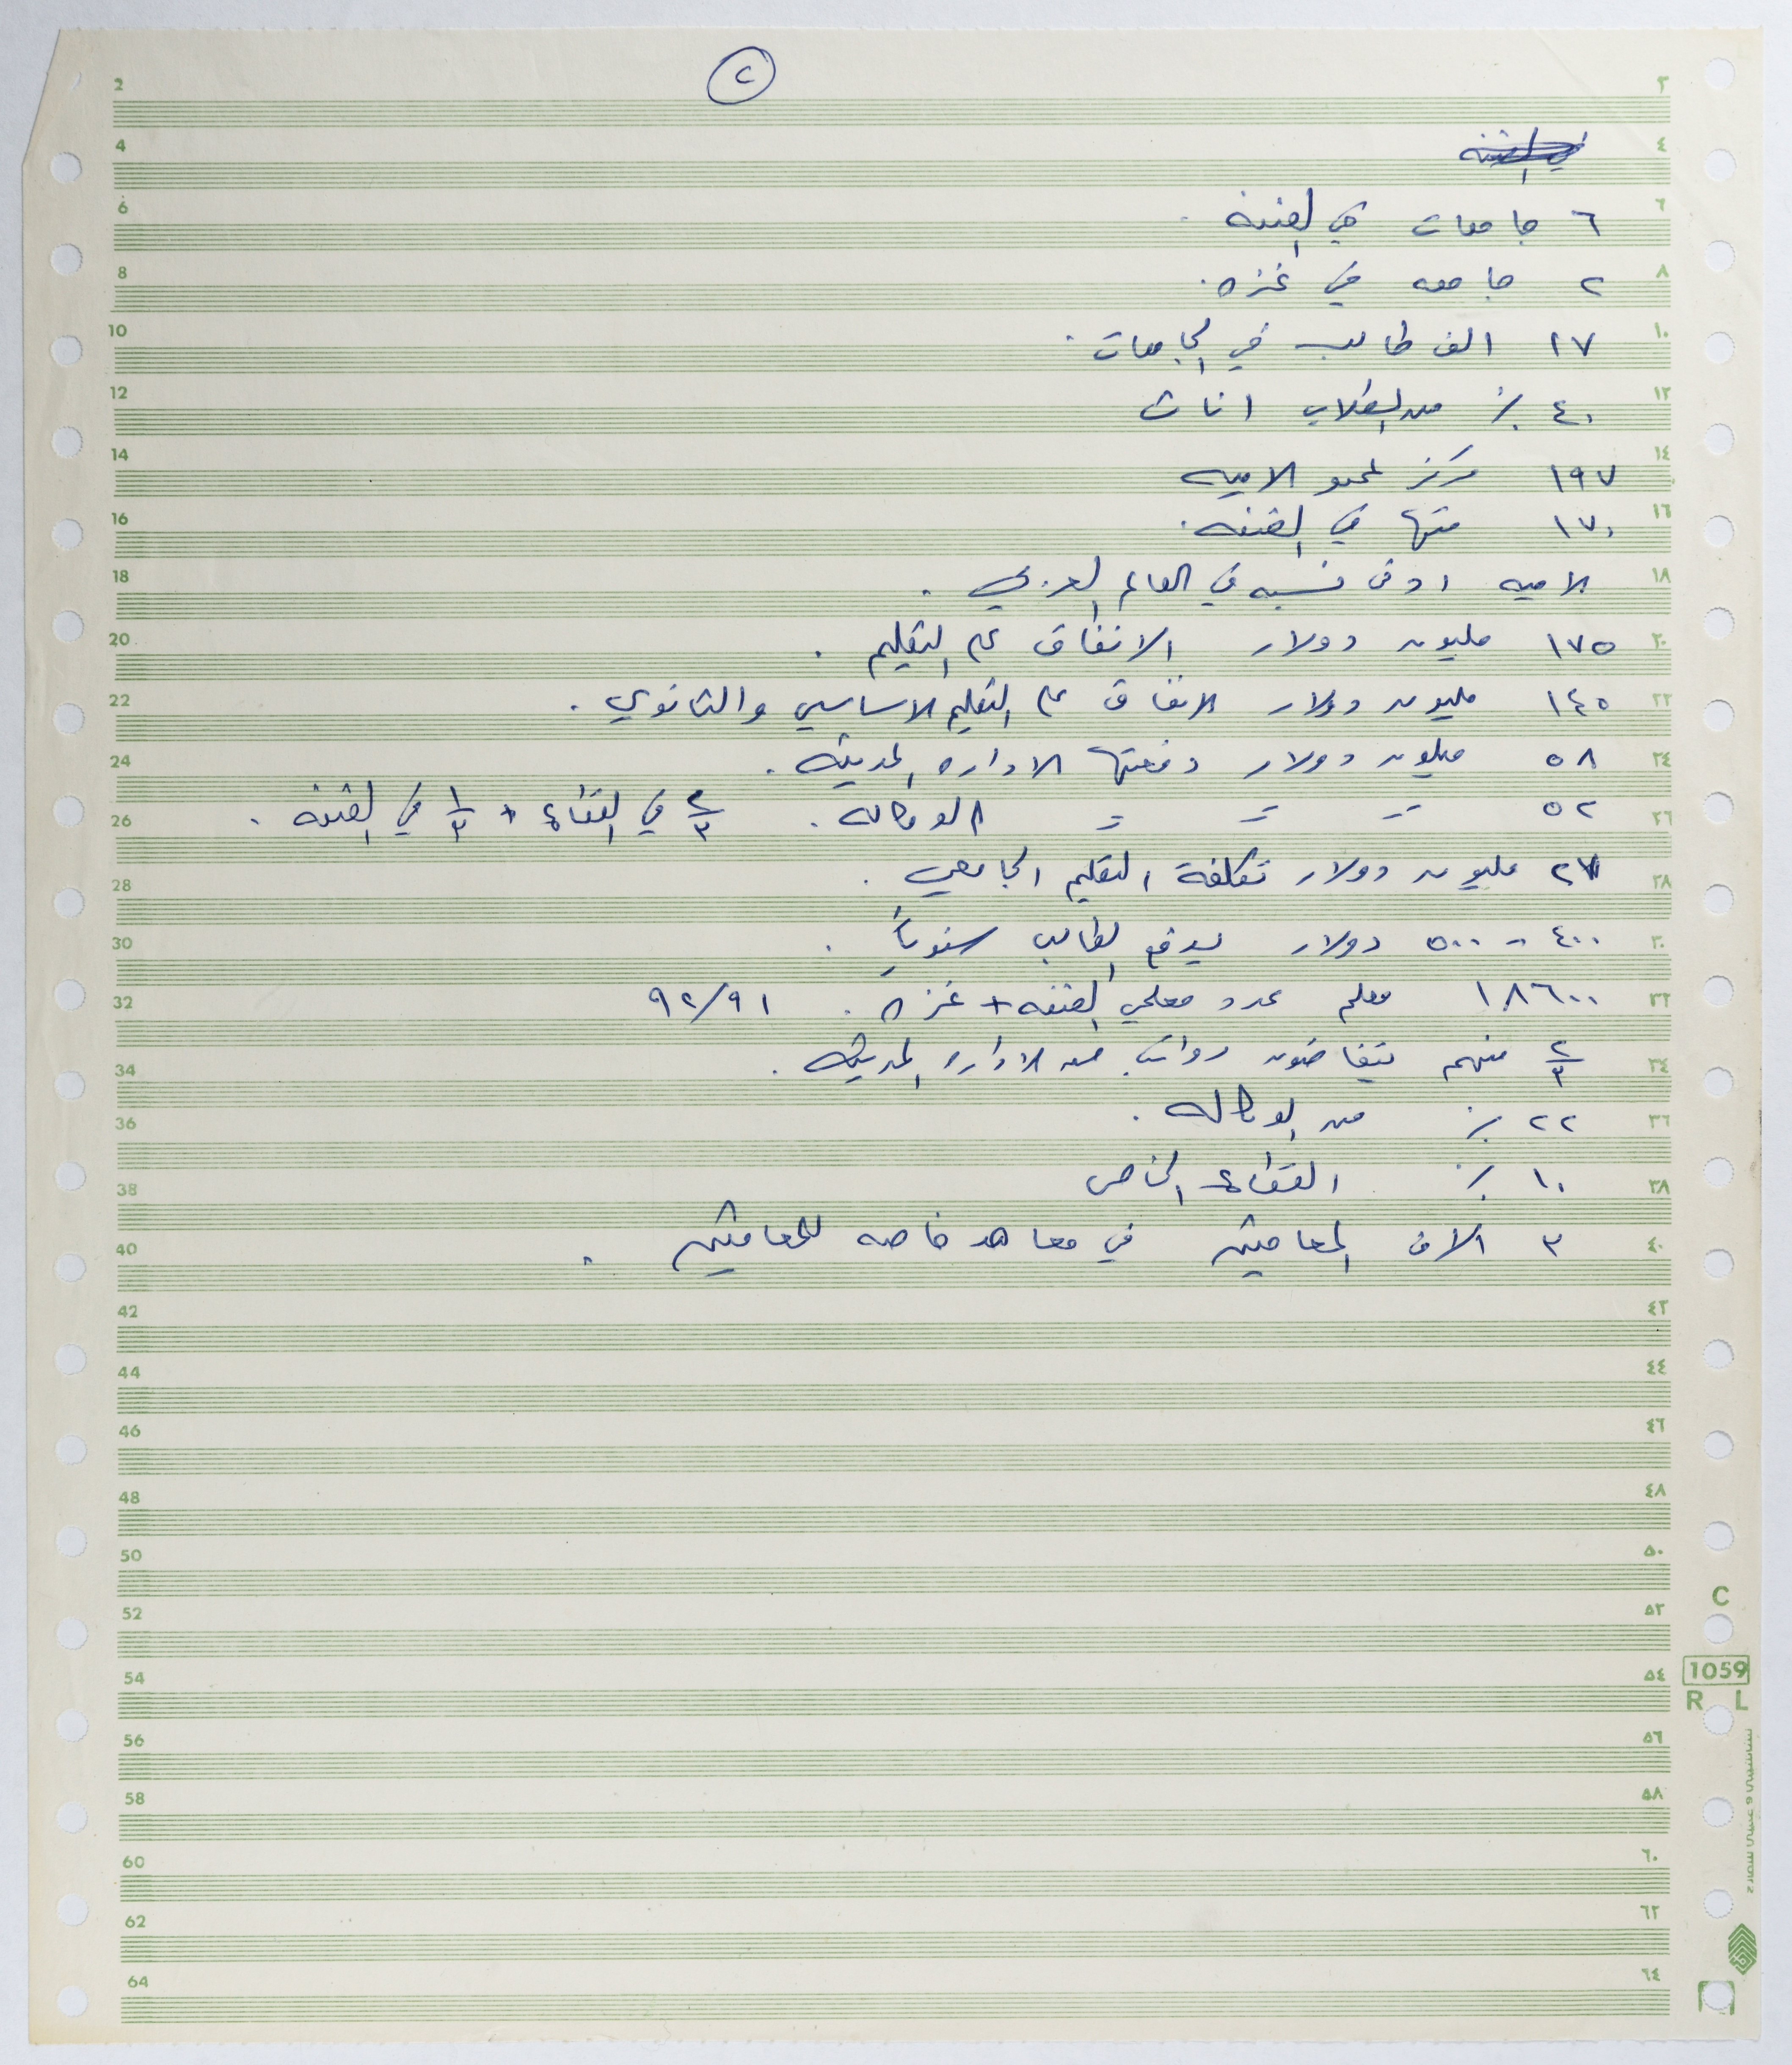 ٢
٦ جامعات في الضفه .
٢ جامعه في غزه .
١٧ الف طالب في الجامعات .
٤٠ ٪ من الطلاب اناث
١٩٧ مركز لمحو الاميه
١٧٠ منها في الضفه .
الاميه ادنى نسبه في العالم العربي .
١٧٥ مليون دولار الانفاق على التعليم .
١٤٥ مليون دولار الانفاق على التعليم الاساسي والثانوي .
٥٨ مليون دولار دفعتها الاداره المدنيه .
٥٢ = = = الوكاله . ٢/٣ في القطاع + ١/٣ في الضفه .
مليون دولار تكلفة التعليم الجامعي .
٤٠٠ - ٥٠٠ دولار يدفع الطالب سنوياً .
١٨٦٠٠ معلم عدد معلمي الضفه + غزه . ٩٢/٩١
٢/٣ منهم يتقاضون رواتب من الاداره المدنيه .
٢٢ ٪ من الوكاله .
١٠ ٪ القطاع الخاص
٣ الاف المعاقين في معاهد خاصه للمعاقين .
2 ٢
4 ٤
6 ٦
8 ٨
10 ١٠
12 ١٢
14 ١٤
16 ١٦
18 ١٨
20 ٢٠
22 ٢٢
24 ٢٤
26 ٢٦
28 ٢٨
30 ٣٠
32 ٣٢
34 ٣٤
36 ٣٦
38 ٣٨
40 ٤٠
42 ٤٢
44 ٤٤
46 ٤٦
48 ٤٨
50 ٥٠
52 ٥٢
54 ٥٤
56 ٥٦
58 ٥٨
60 ٦٠
62 ٦٢
64 ٦٤
C
1059
R L